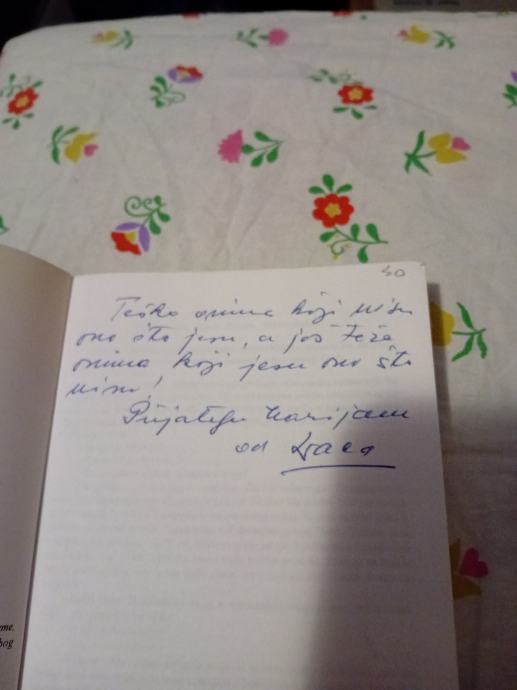 40
Teško onima koji nisu
ono što jesu, a još teže
onima koji jesu ono što
nisu!
Prijatelju Marijanu
od
me.
bog